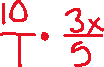 10/1 • 3x/5